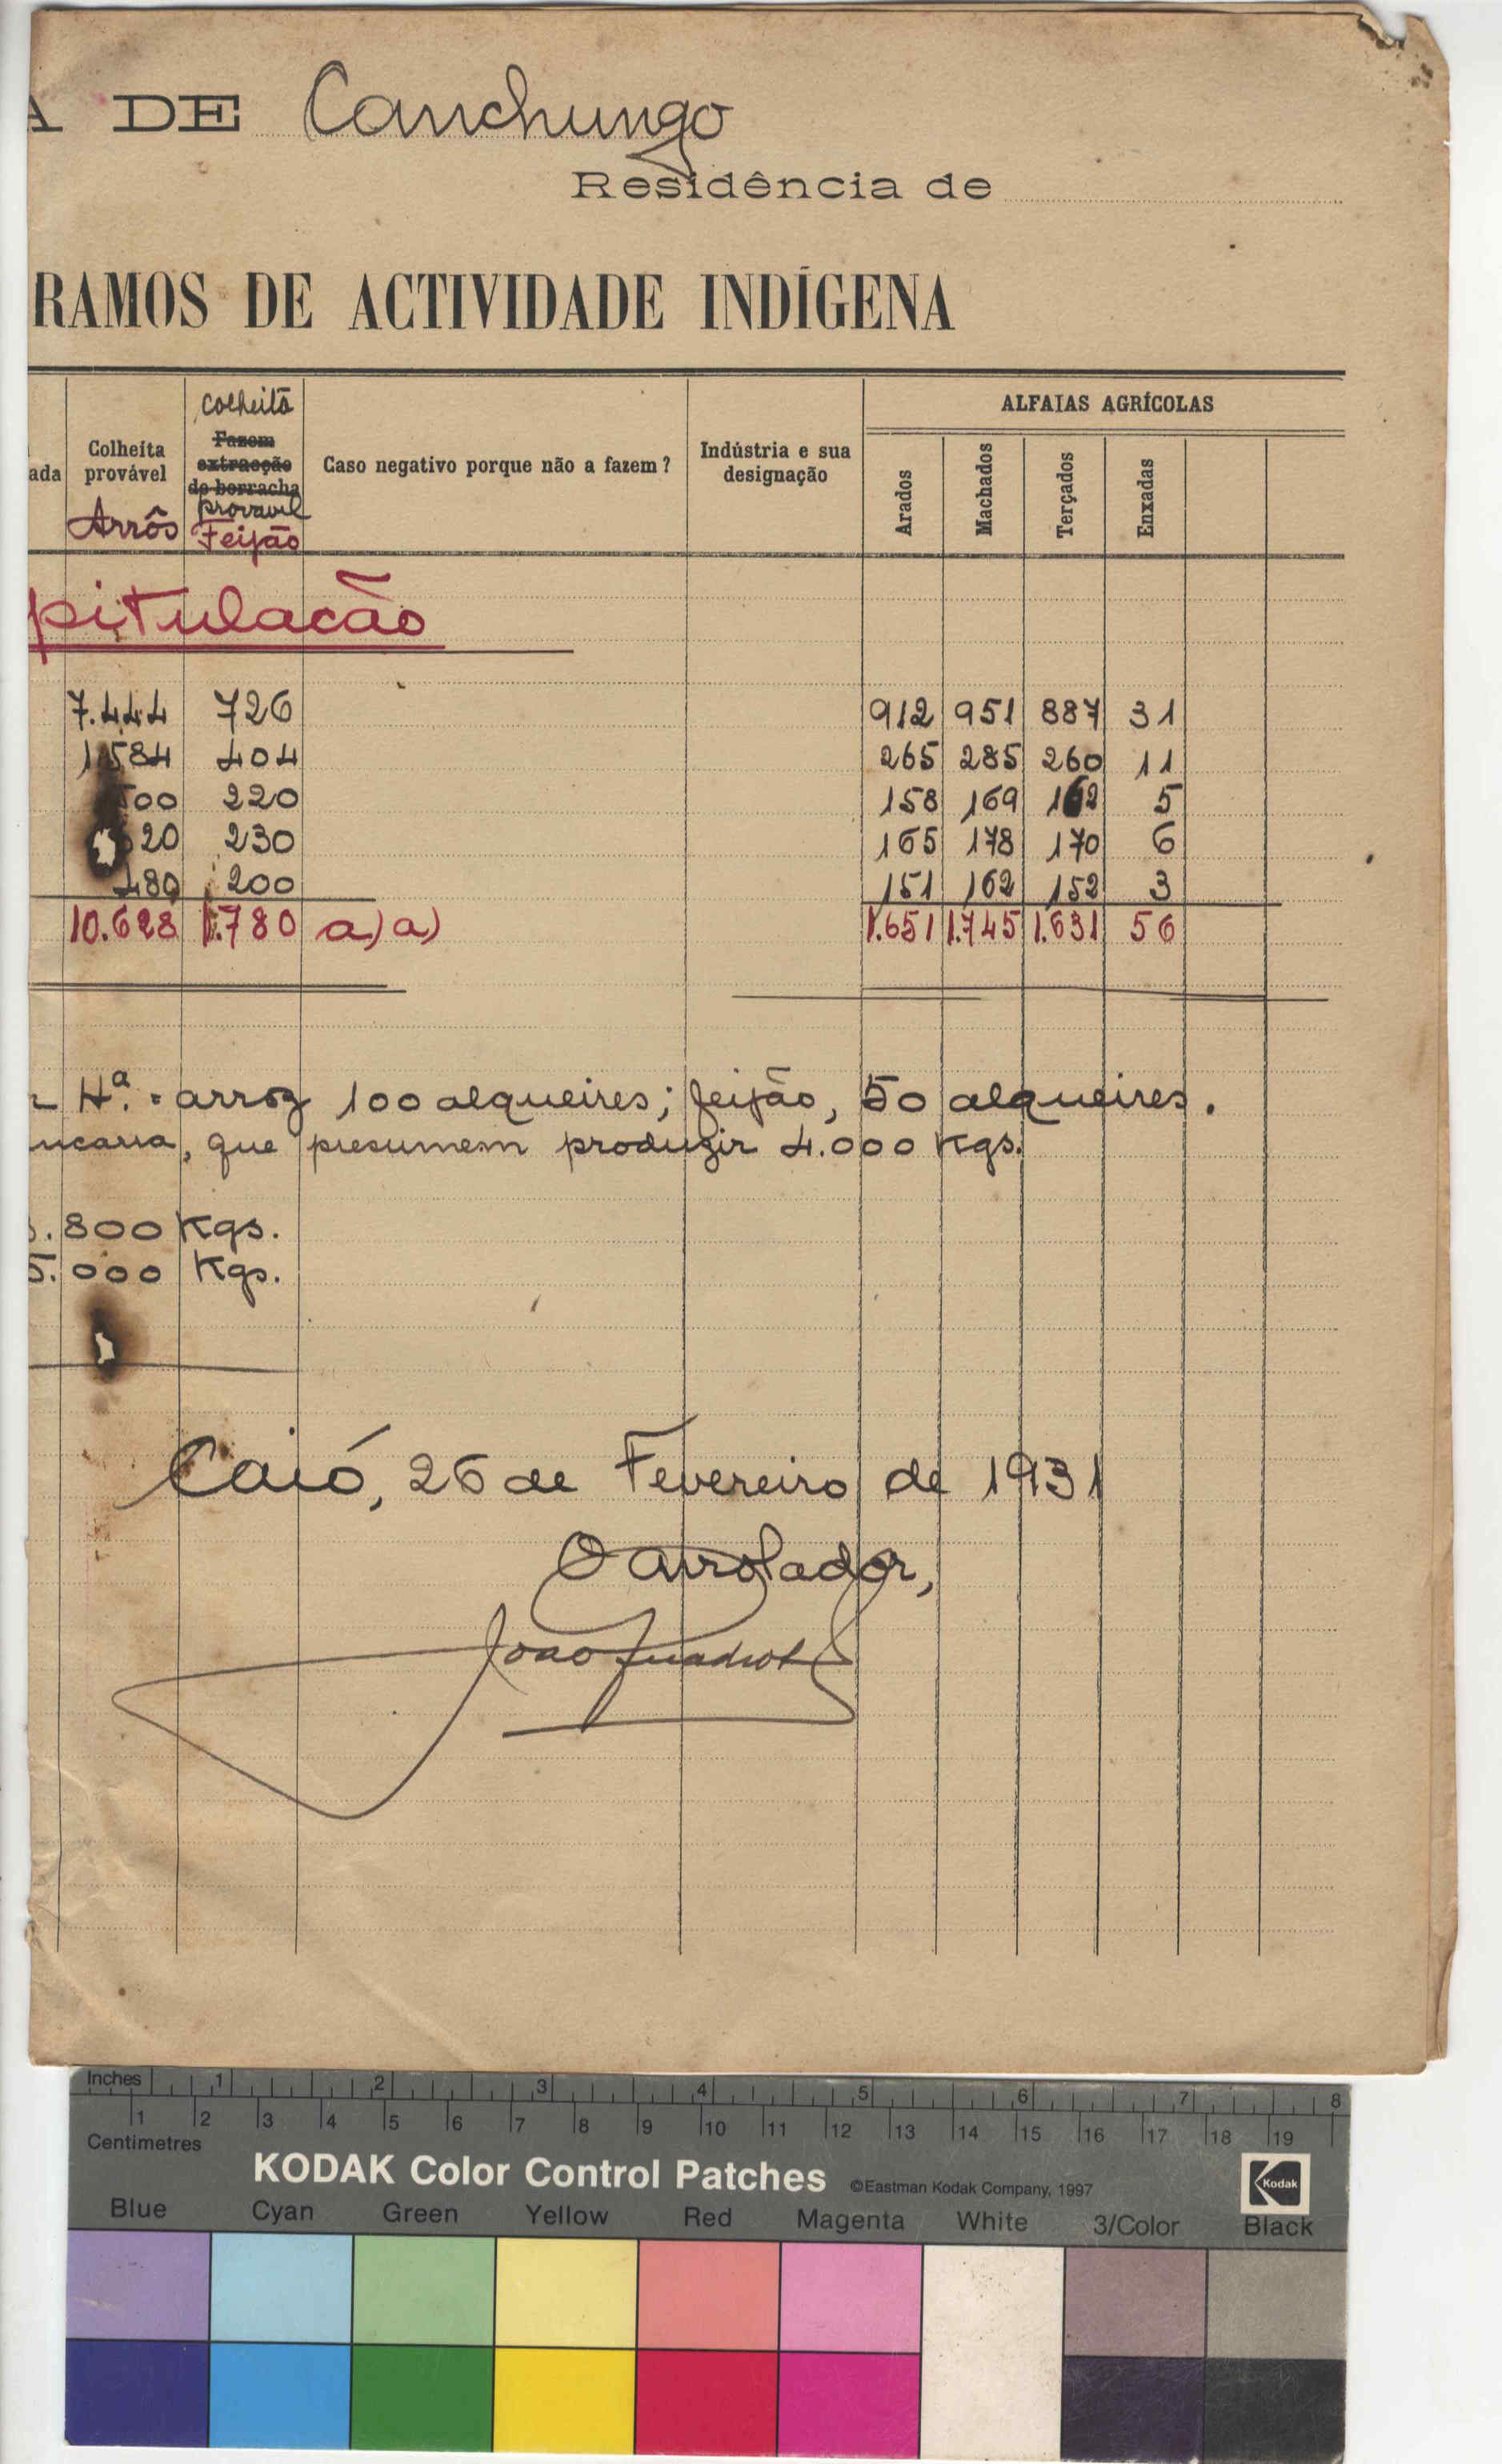 A DE Canchungo
Residência de
RAMOS DE ACTIVIDADE INDÍGENA
ada
Colheita provável
Arrôs
colheitã
Fazem extracção de borracha
provavel
Feijão
Caso negativo porque não a fazem?
Indústria e sua designação
ALFAIAS AGRÍCOLAS
Arados Machados Terçados Enxadas
pitulacão
7.444 726 912 951 887 31
1.584 404 265 285 260 11
00 220 158 169 162 5
20 230 165 178 170 6
480 200 151 162 152 3
10.628 1.780 a) a) 1.651 1.745 1.631 56
Hª. = arroz 100 alqueires; feijão, 50 alqueires.
ncaria, que presumem produzir 4.000 Kgs.
.800 Kgs.
5.000 Kgs.
Caió, 26 de Fevereiro de 1931
O arrolador,
João
Inches 1 2 3 4 5 6 7 8
1 2 3 4 5 6 7 8 9 10 11 12 13 14 15 16 17 18 19
Centimetres
KODAK Color Control Patches ©Eastman Kodak Company, 1997 Kodak
Blue Cyan Green Yellow Red Magenta White 3/Color Black